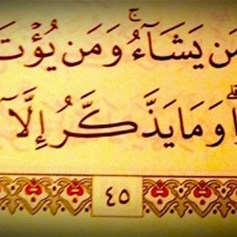 مَن يَشَآءُۚ وَمَن يُؤْتَ
وَمَا يَذَّكَّرُ إِلَّآ
٤٥